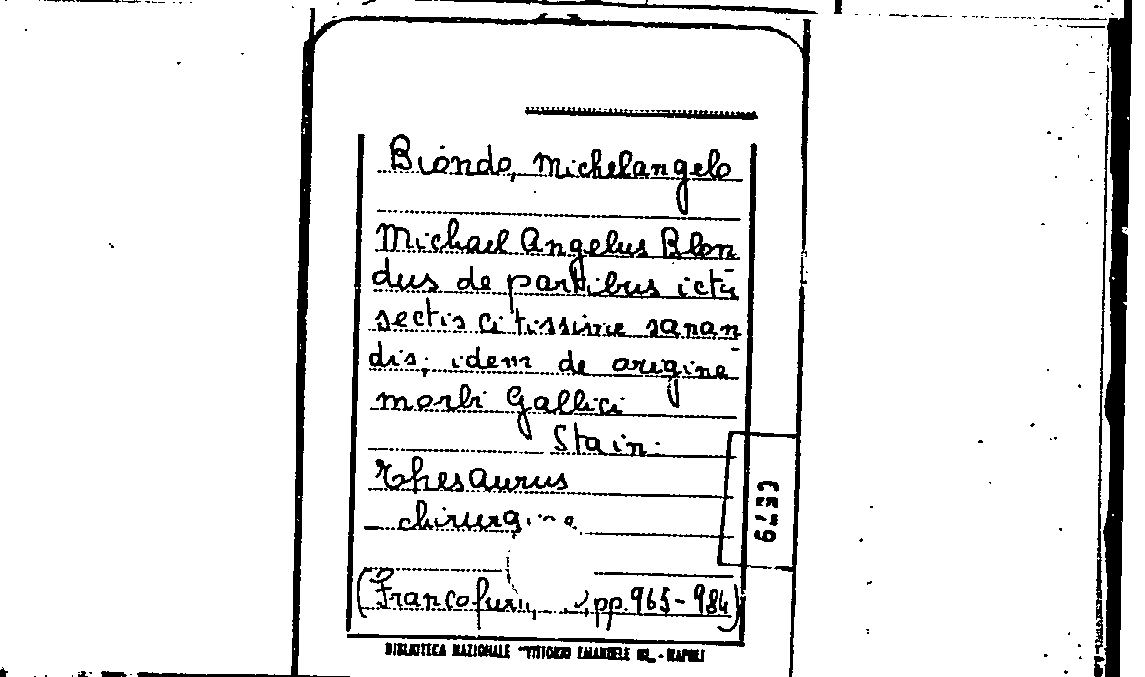 Biondo, Michelangelo
Michael Angelus Blon
dus de partibus ictū
sectis citissime sanan
dis; idem de origine
morbi Gallici
Stain:
Thesaurus
chirurg
(Francofur pp. 965-984)
BIBLIOTECA NAZIONALE "VITTORIO EMANUELE III" - NAPOLI